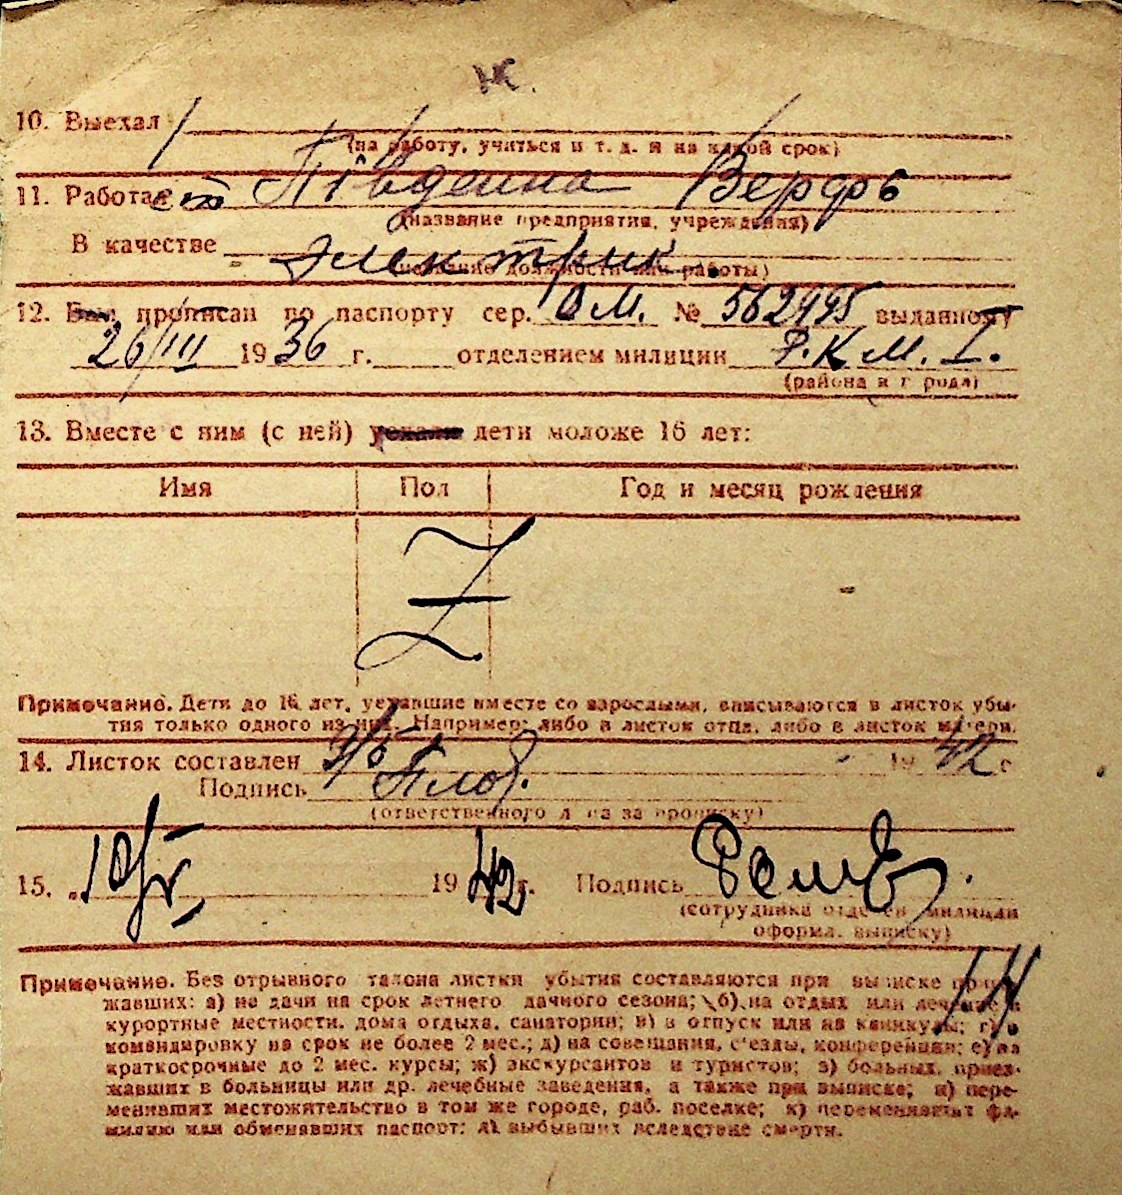 10. Выехал
(на работу, учиться и т. д. и на какой срок)
11. Работает Південна Верфь
(название предприятия, учреждения)
В качестве электрик
(название должности или работы)
12. Был прописан по паспорту сер. ОМ. № 562995 выданному
26/III 1936 г. отделением милиции Р.К.М. I.
(района и города)
13. Вместе с ним (с ней) уехали дети моложе 16 лет:
Имя Пол Год и месяц рождения
Z
Примечание. Дети до 16 лет, уехавшие вместе со взрослыми, вписываются в листок убы-
тия только одного из них. Например: либо в листок отца, либо в листок матери.
14. Листок составлен 9/5 1942 г
Подпись
(ответственного лица за прописку)
15. „10/V 1942 г. Подпись
(сотрудника отделен. милиции
оформл. выписку)
Примечание. Без отрывного талона листки убытия составляются при выписке приез-
жавших: а) на дачи на срок летнего дачного сезона; б) на отдых или лечение в
курортные местности, дома отдыха, санатории; в) в отпуск или на каникулы; г) в
командировку на срок не более 2 мес.; д) на совещания, съезды, конференции; е) на
краткосрочные до 2 мес. курсы; ж) экскурсантов и туристов; з) больных, приез-
жавших в больницы или др. лечебные заведения, а также при выписке; и) пере-
менивших местожительство в том же городе, раб. поселке; к) переменивших фа-
милию или обменявших паспорт; л) выбывших вследствие смерти.